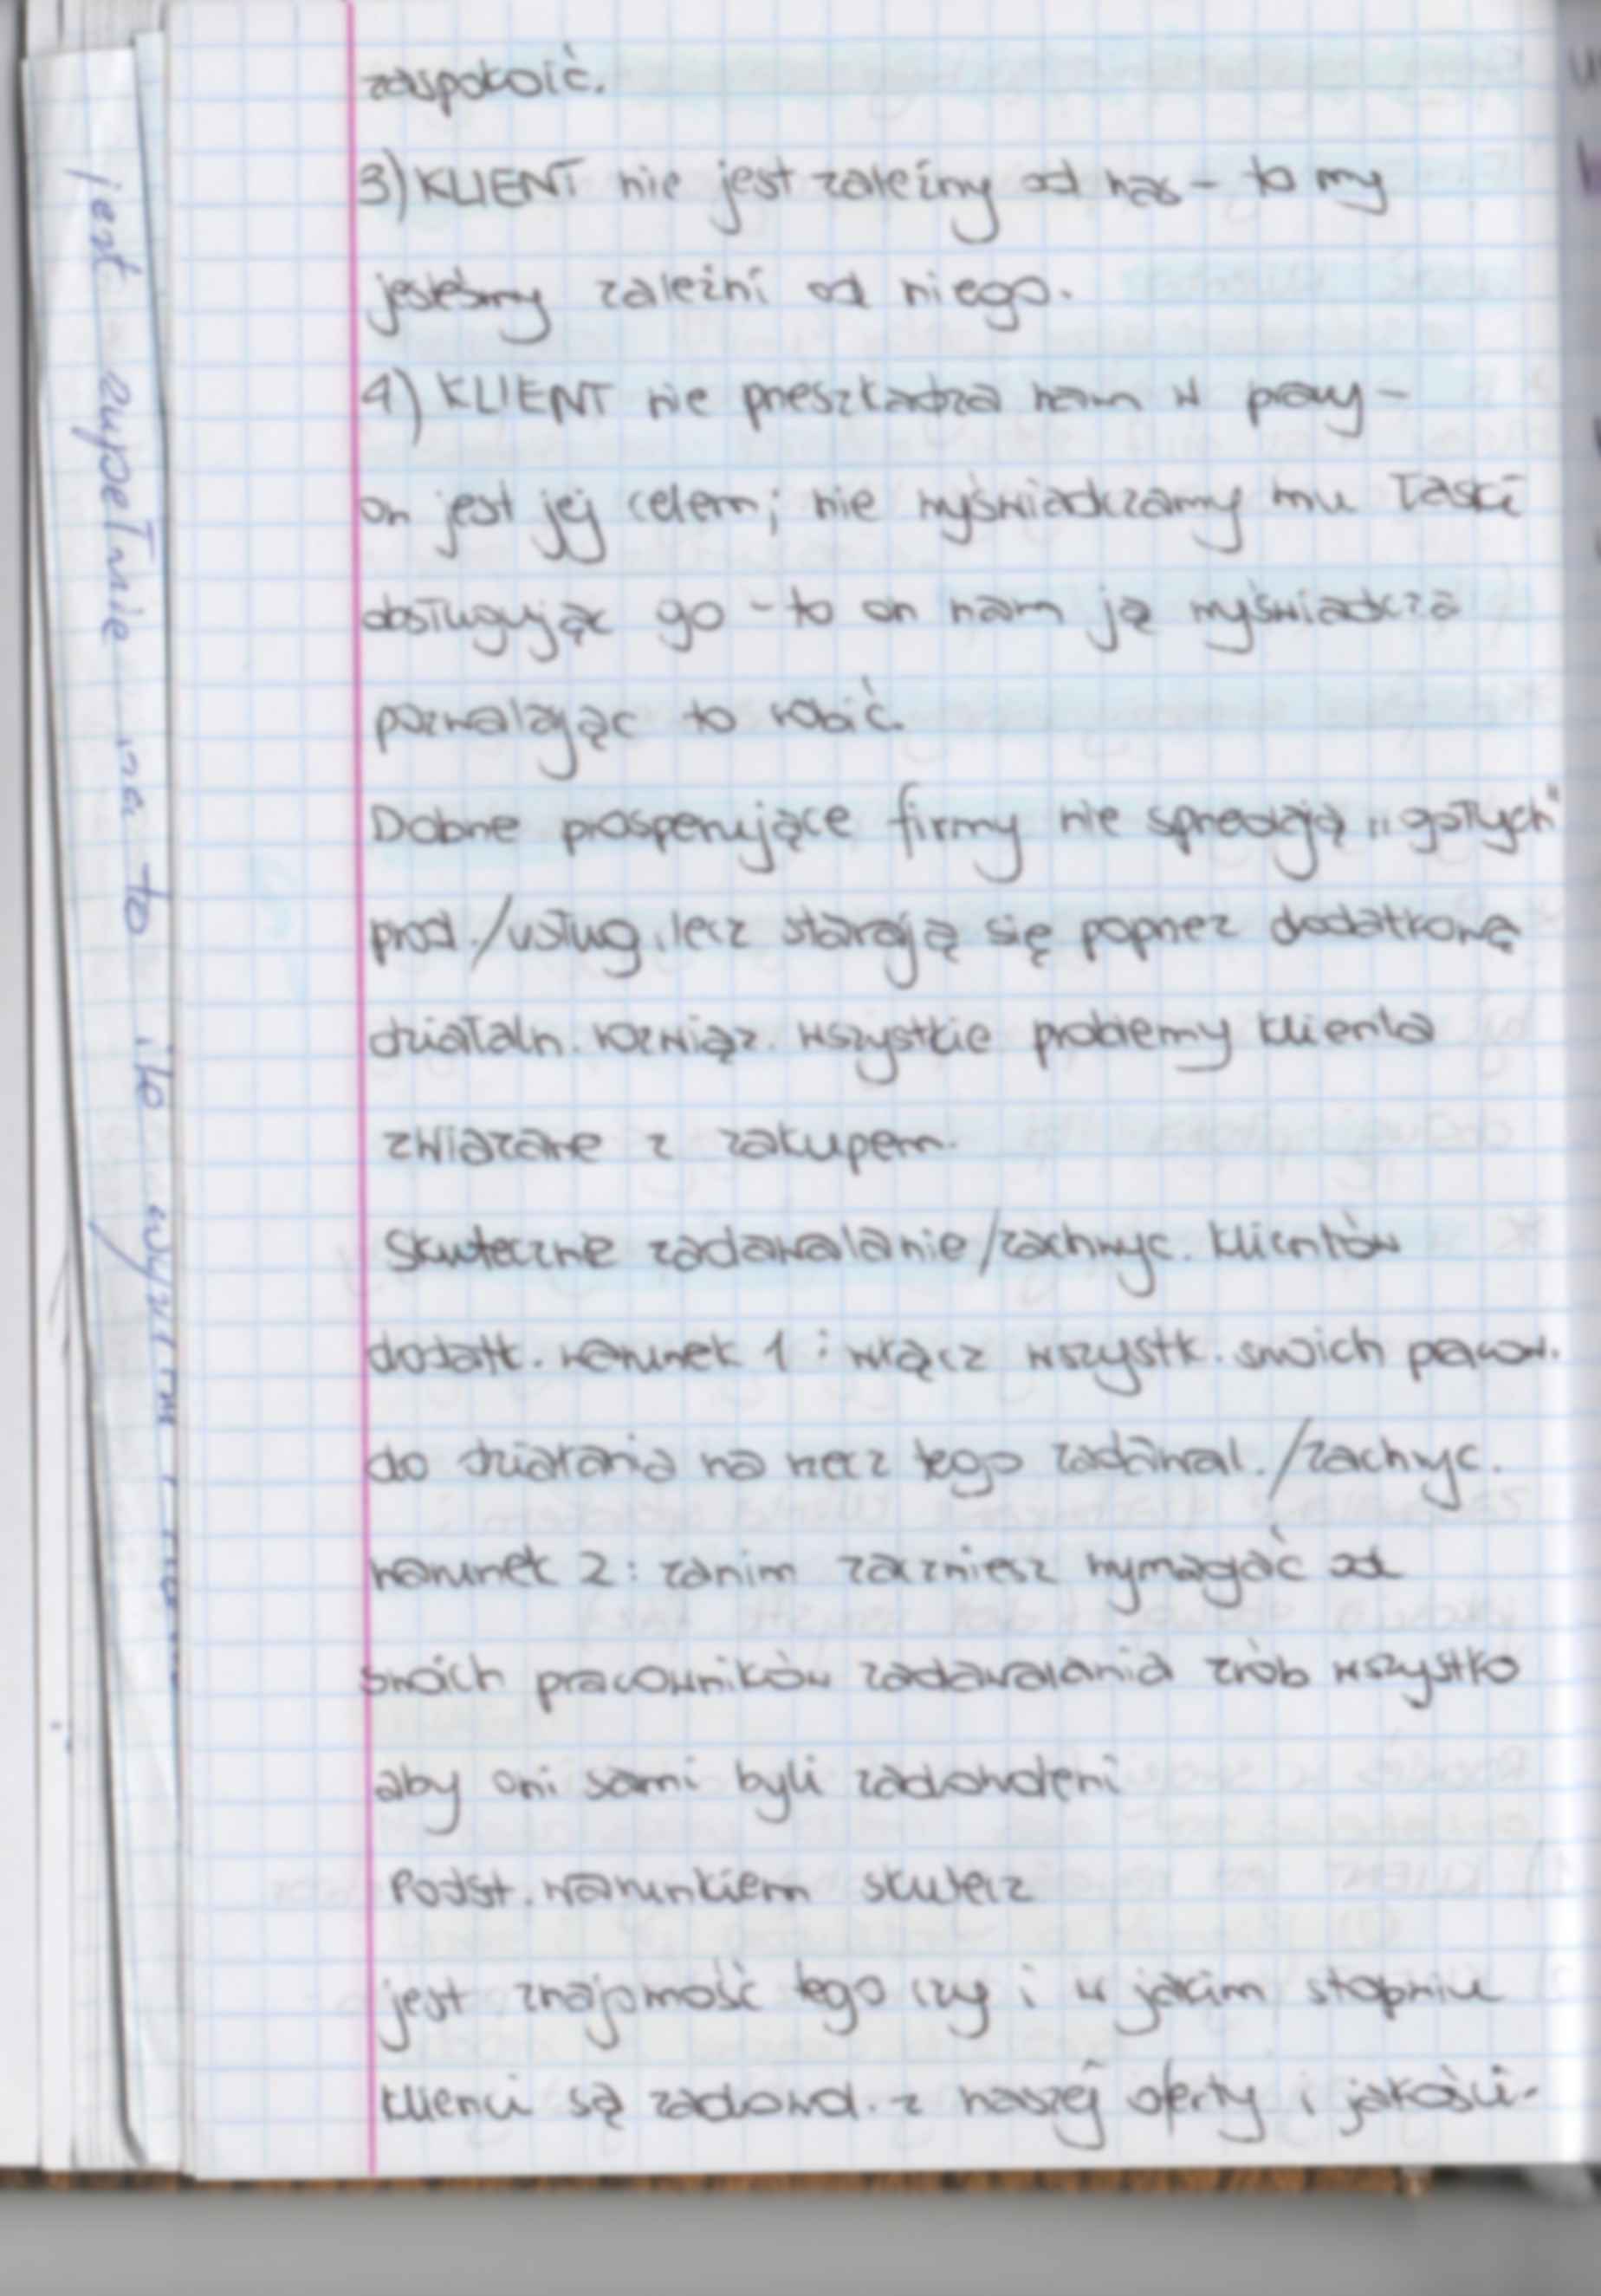 zaspokoić.
3) KLIENT nie jest zależny od nas - to my
jesteśmy zależni od niego.
4) KLIENT nie przeszkadza nam w pracy -
on jest jej celem; nie wyświadczamy mu łaski
obsługując go - to on nam ją wyświadcza
pozwalając to robić.
Dobrze prosperujące firmy nie sprzedają „gołych"
prod./usług, lecz starają się poprzez dodatkową
działaln. rozwiąz. wszystkie problemy klienta
zwiazane z zakupem.
Skuteczne zadawalanie/zachwyc. klientów
dodatk. warunek 1: włącz wszystk. swoich pracow.
do działania na rzecz tego zadawal./zachwyc.
warunek 2: zanim zaczniesz wymagać od
swoich pracowników zadawalania zrób wszystko
aby oni sami byli zadowoleni
Podst. warunkiem skutecz
jest znajomość tego czy i w jakim stopniu
klienci są zadowol. z naszej oferty i jakości-
jest zupełnie na to